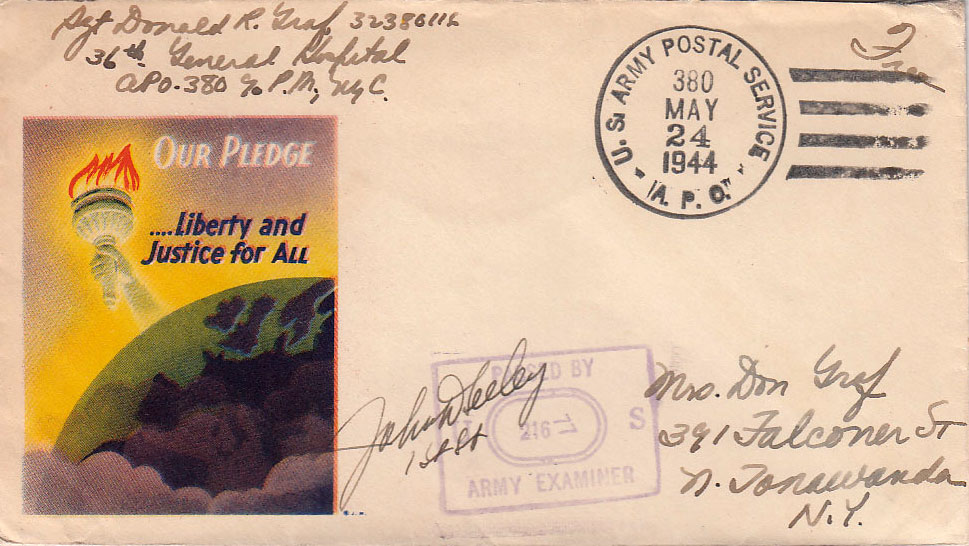 Sgt Donald R. Graf, 32386116
36th General Hospital
APO-380 c/o P.M., NYC.
Free
U.S. ARMY POSTAL SERVICE
380
MAY
24
1944
A. P. O.
OUR PLEDGE
....Liberty and
Justice for ALL
PASSED BY
S
ARMY EXAMINER
John
1st Lt
Mrs. Don Graf
391 Falconer St
N. Tonawanda
N.Y.